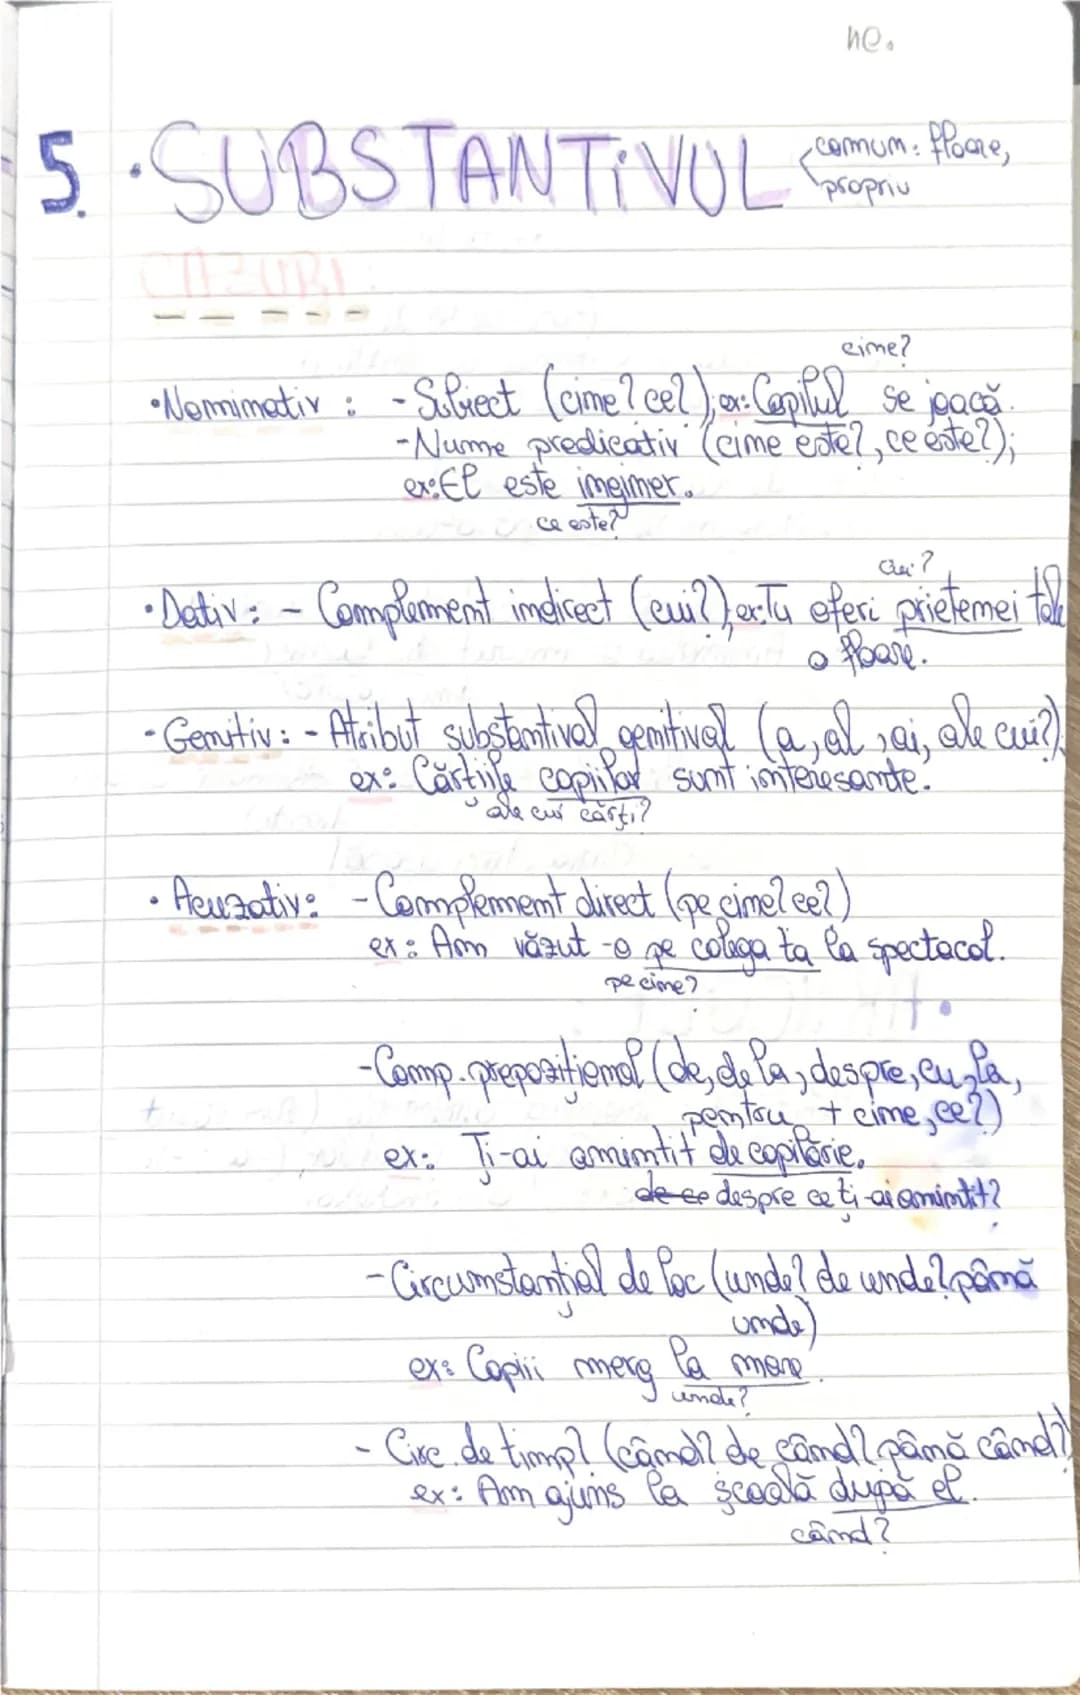 ne.
5. • SUBSTANTIVUL
comun: floare,
propriu
CAZURI
cine?
• Nominativ : - Subiect (cine? ce?); ex: Copilul se joacă.
- Nume predicativ (cine este?, ce este?);
ex: El este inginer.
ce este?
cui?
• Dativ: - Complement indirect (cui?); ex: Tu oferi prietenei tale
o floare.
- Genitiv: - Atribut substantival genitival (a, al, ai, ale cui?)
ex: Cărțiile copiilor sunt interesante.
ale cui cărți?
• Acuzativ: - Complement direct (pe cine? ce?)
ex: Am văzut-o pe colega ta la spectacol.
pe cine?
- Comp. prepozițional (de, de la, despre, cu, la,
pentru + cine, ce?)
ex: Ți-ai amintit de copilărie.
de ce despre ce ți-ai amintit?
- Circumstanțial de loc (unde? de unde? până
unde)
ex: Copiii merg la mare.
unde?
- Circ. de timp? (când? de când? până când?)
ex: Am ajuns la școală după el.
când?